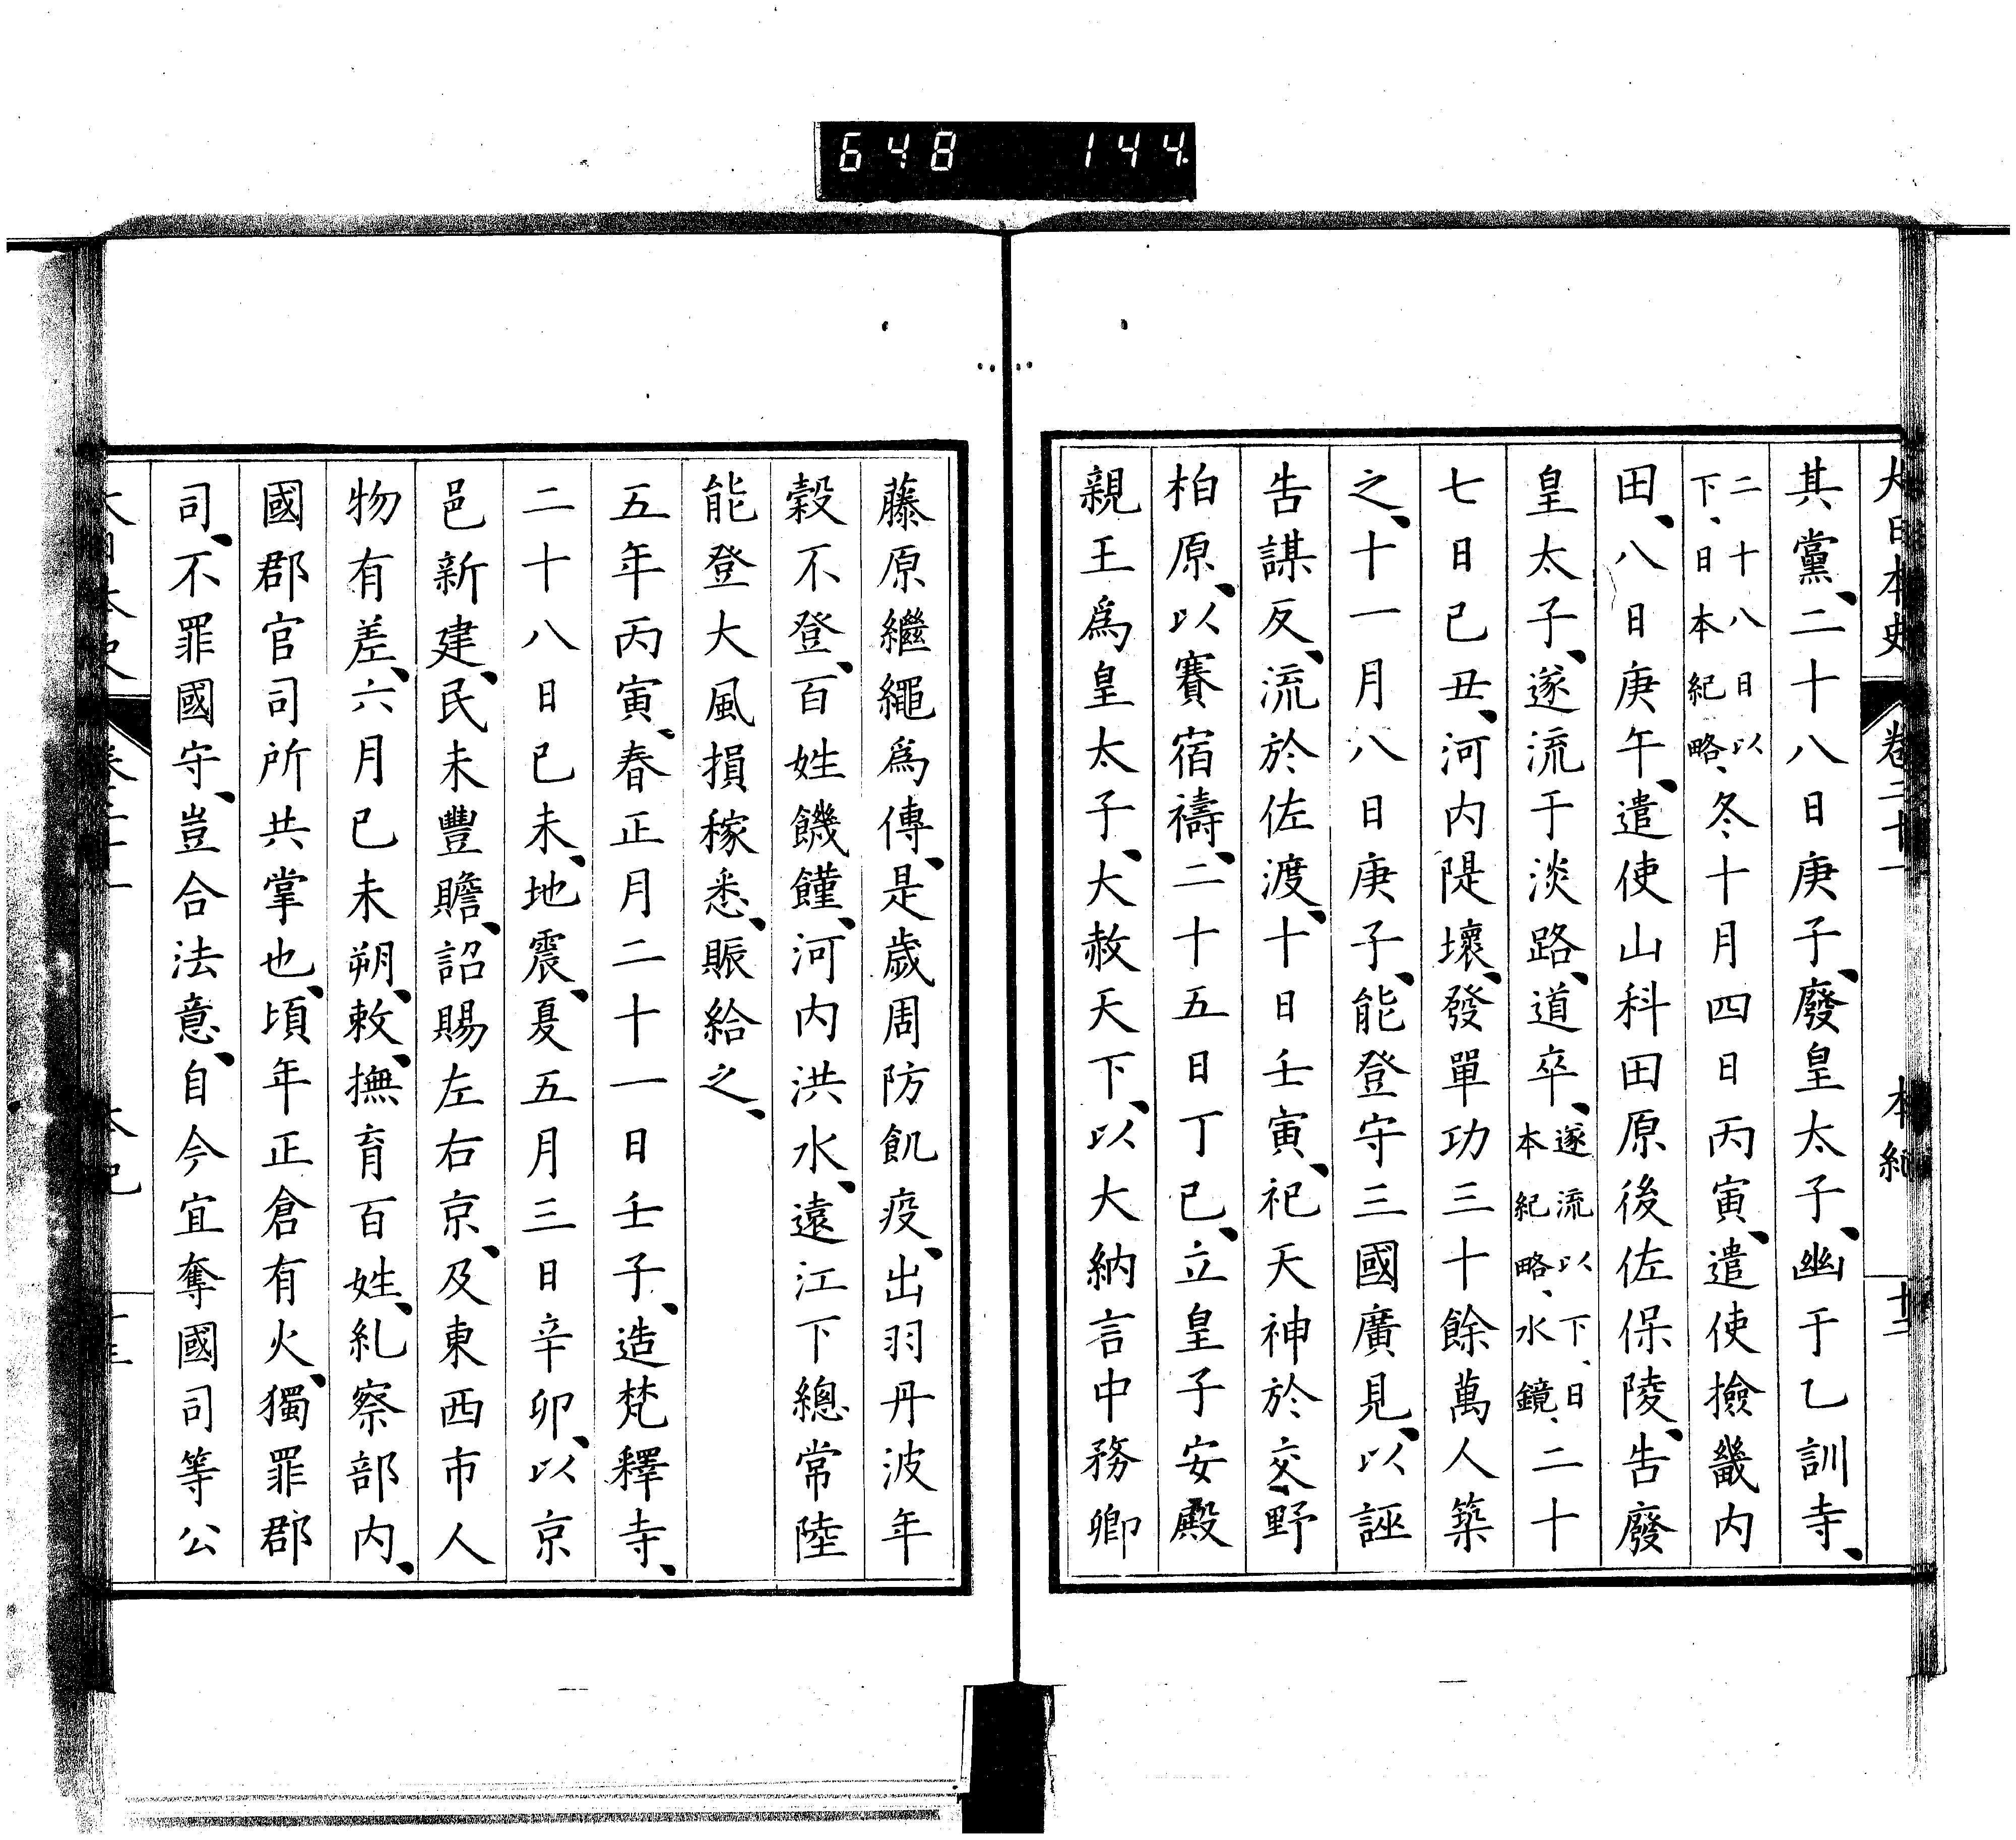 648 144
大日本史 卷二十一 本紀 十二
其黨、二十八日庚子、廢皇太子、幽于乙訓寺、
二十八日以
下、日本紀略、
冬十月四日丙寅、遣使撿畿内
田、八日庚午、遣使山科田原後佐保陵、告廢
皇太子、遂流于淡路、道卒、
遂流以下、日
本紀略、水鏡、
二十
七日己丑、河内隄壞、發單功三十餘萬人築
之、十一月八日庚子、能登守三國廣見、以誣
告謀反、流於佐渡、十日壬寅、祀天神於交野
柏原、以賽宿禱、二十五日丁巳、立皇子安殿
親王爲皇太子、大赦天下、以大納言中務卿
藤原繼繩爲傳、是歲周防飢疫、出羽丹波年
穀不登、百姓饑饉、河内洪水、遠江下總常陸
能登大風損稼悉、賑給之、
五年丙寅、春正月二十一日壬子、造梵釋寺、
二十八日己未、地震、夏五月三日辛卯、以京
邑新建、民未豐贍、詔賜左右京、及東西市人
物有差、六月己未朔、敕、撫育百姓、糺察部内、
國郡官司所共掌也、頃年正倉有火、獨罪郡
司、不罪國守、豈合法意、自今宜奪國司等公